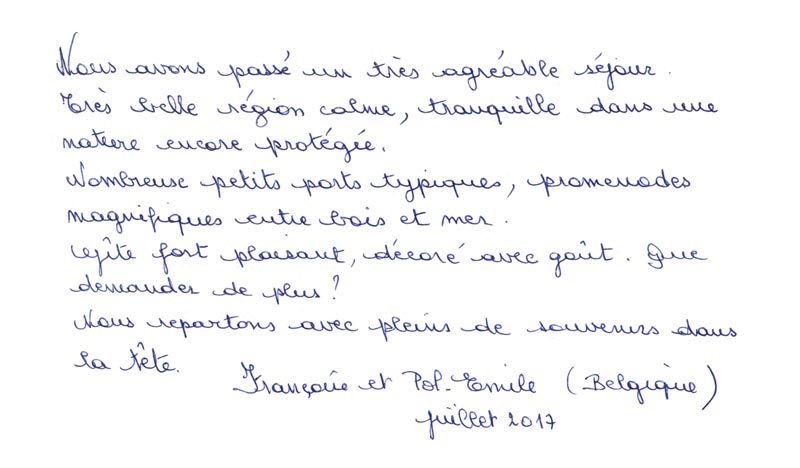 Nous avons passé un très agréable séjour.
Très belle région calme, tranquille dans une
nature encore protégée.
Nombreuse petits ports typiques, promenades
magnifiques entre bois et mer.
Gîte fort plaisant, décoré avec goût. Que
demander de plus ?
Nous repartons avec pleins de souvenirs dans
la tête.
Françoise et Pol-Emile (Belgique)
juillet 2017